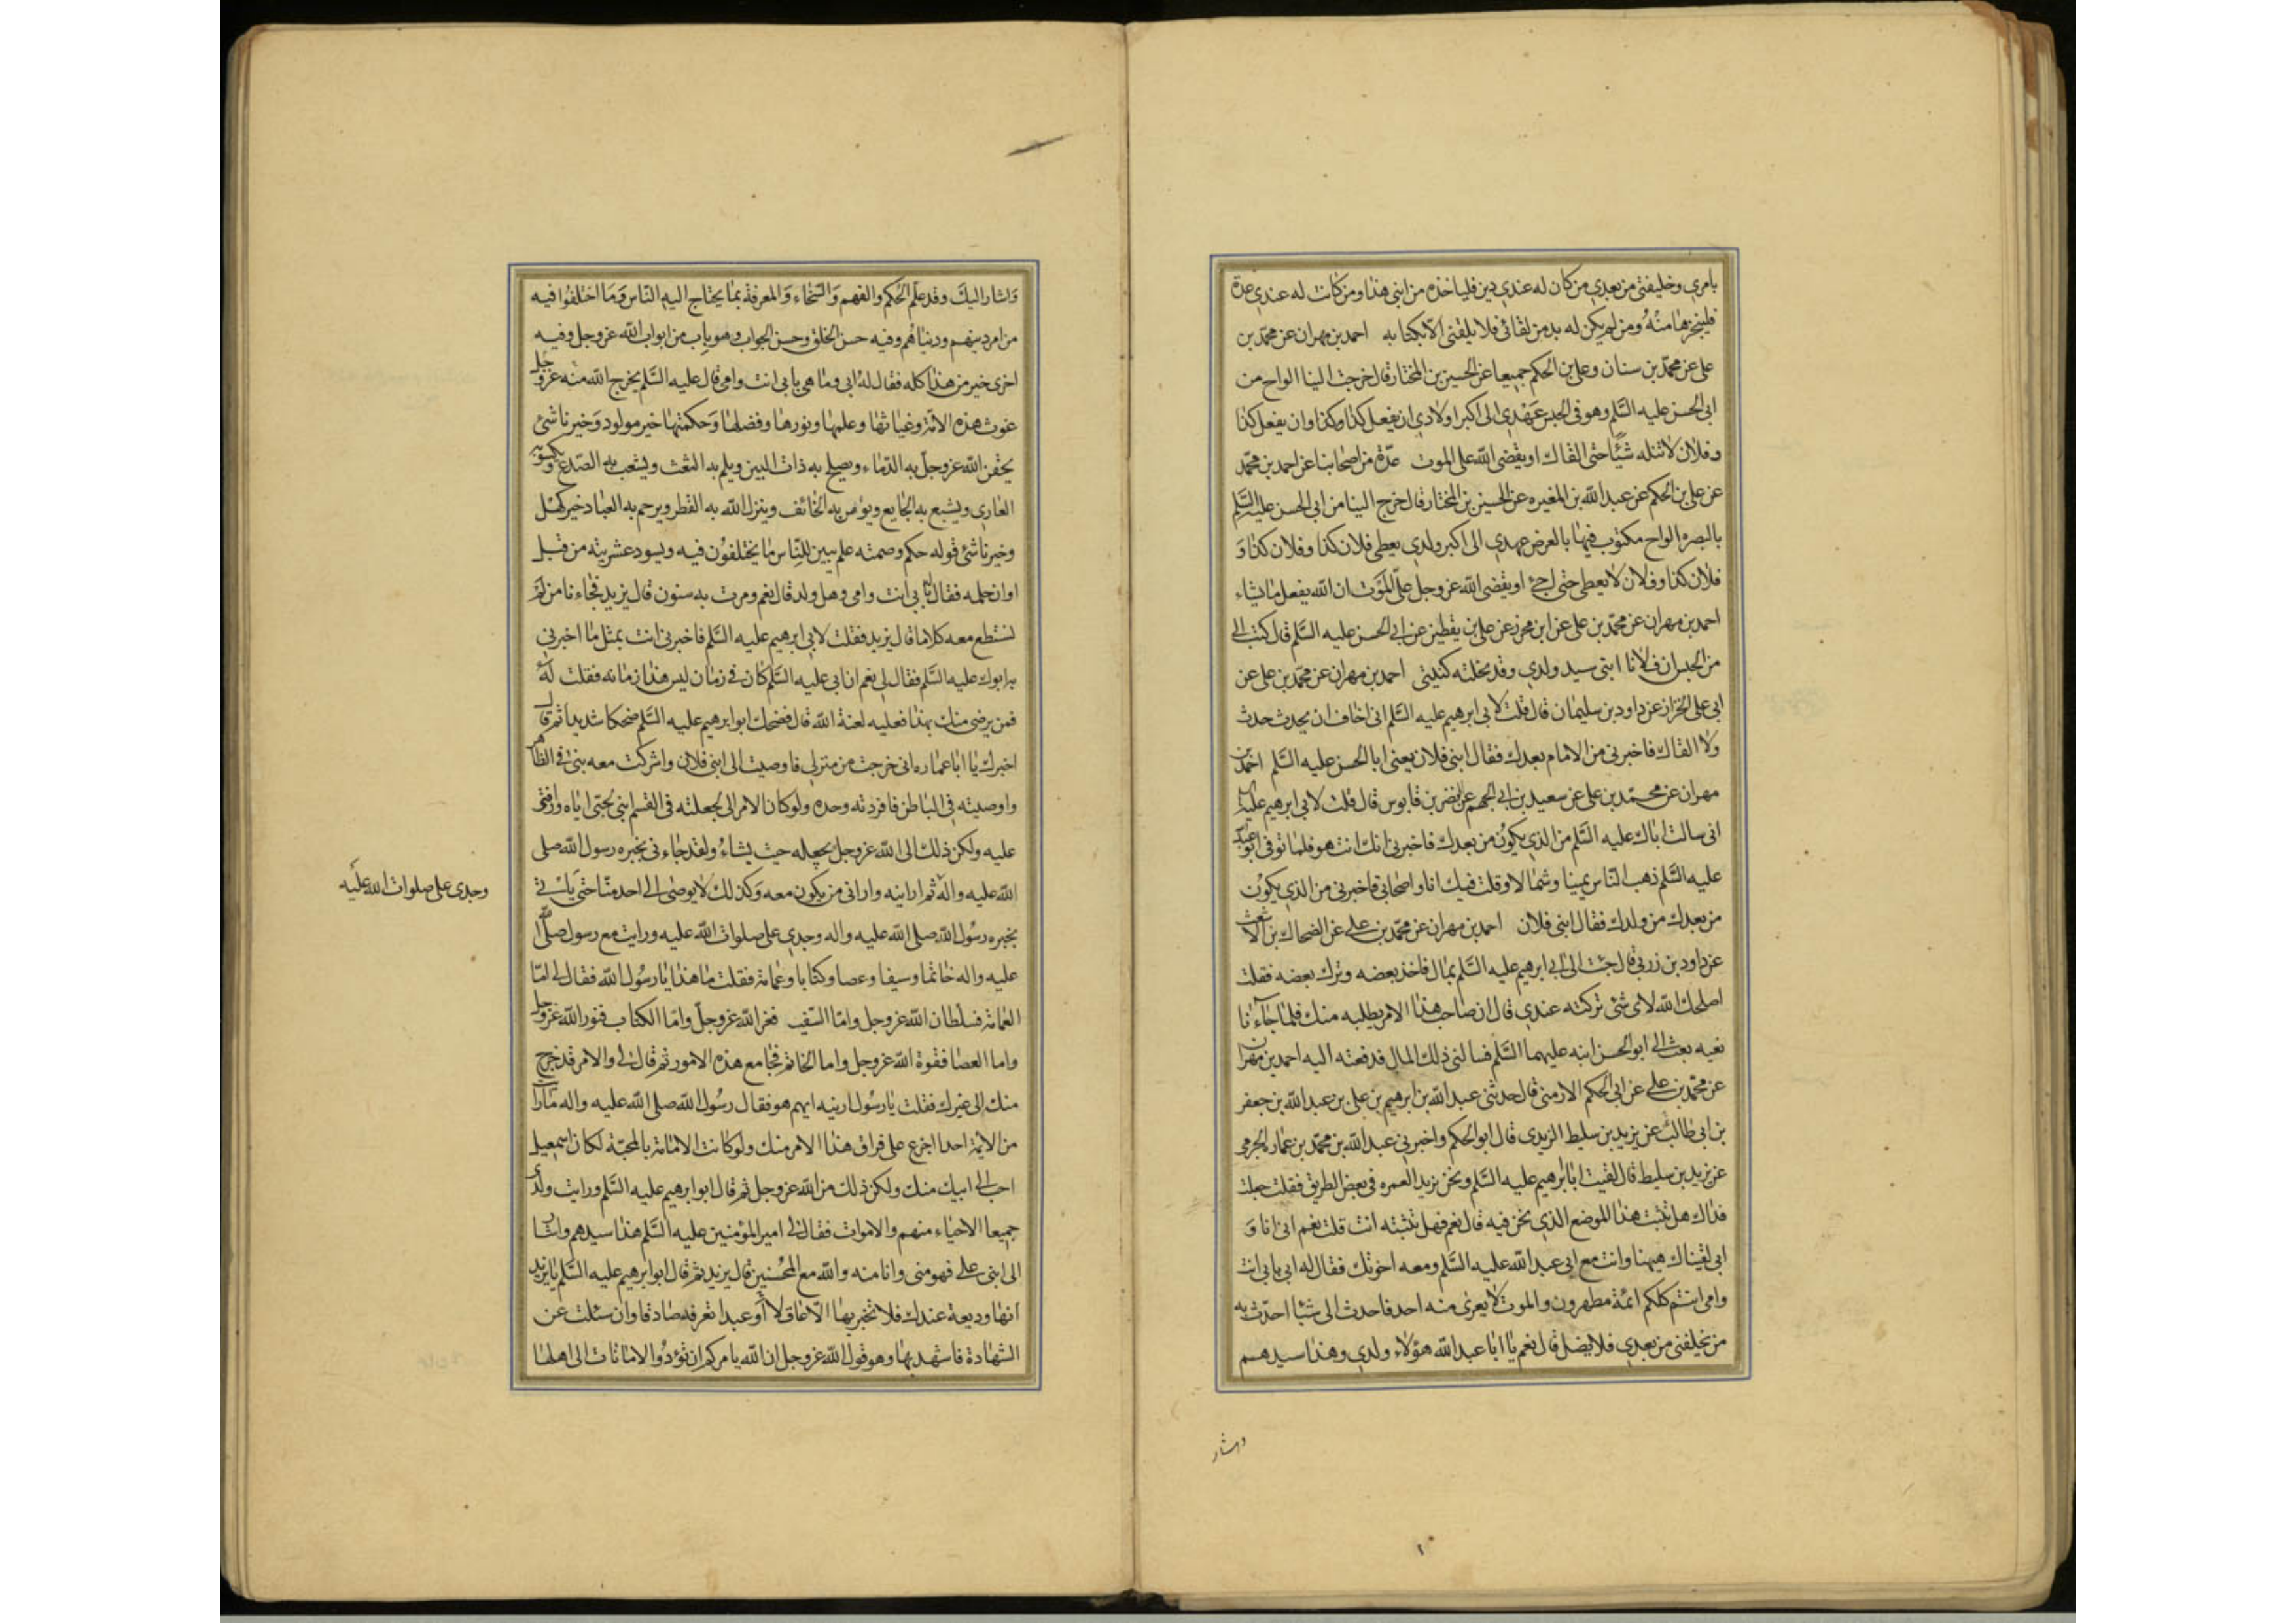 بامري وخليفتي من بعدي من كان له عندي دين فلياخذه من ابني هذا ومن كانت له عندي عدة
فلينجزها منه ومن لم يكن له بد من لقائي فلا يلقني الا بكتابه احمد بن مهران عن محمد بن
علي عن محمد بن سنان وعلي بن الحكم جميعا عن الحسين بن المختار قال خرجت الينا الواح من
ابي الحسن عليه السلم وهو في الحبس عهدي الى اكبر اولادي ان يفعل كذا وكذا وان يفعل كذا
وفلان لا تنله شيئا حتى القاك او يقضي الله علي الموت عدة من اصحابنا عن احمد بن محمد
عن علي بن الحكم عن عبد الله بن المغيره عن الحسين بن المختار قال خرج الينا من ابي الحسن عليه السلم
بالبصره الواح مكتوب فيها بالعرض عهدي الى اكبر ولدي يعطى فلان كذا وفلان كذا و
فلان كذا وفلان لا يعطى حتى اجئ او يقضي الله عز وجل علي الموت ان الله يفعل ما يشاء
احمد بن مهران عن محمد بن علي عن ابن محرز عن علي بن يقطين عن ابي الحسن عليه السلم قال كتب الي
من الحبس ان فلانا ابني سيد ولدي وقد نحلته كنيتي احمد بن مهران عن محمد بن علي عن
ابي علي الخزاز عن داود بن سليمان قال قلت لابي ابرهيم عليه السلم اني اخاف ان يحدث حدث
ولا القاك فاخبرني من الامام بعدك فقال ابني فلان يعني ابا الحسن عليه السلم احمد بن
مهران عن محمد بن علي عن سعيد بن ابي الجهم عن النضر بن قابوس قال قلت لابي ابرهيم عليه
اني سالت اباك عليه السلم من الذي يكون من بعدك فاخبرني انك انت هو فلما توفي ابو عبد
عليه السلم ذهب الناس يمينا وشمالا وقلت فيك انا واصحابي فاخبرني من الذي يكون
من بعدك من ولدك فقال ابني فلان احمد بن مهران عن محمد بن علي عن الضحاك بن الاشعث
عن داود بن زربي قال جئت الى ابي ابرهيم عليه السلم بمال فاخذ بعضه وترك بعضه فقلت
اصلحك الله لاي شئ تركته عندي قال ان صاحب هذا الامر يطلبه منك فلما جاءنا
نعيه بعث الي ابو الحسن ابنه عليهما السلم فسالني ذلك المال فدفعته اليه احمد بن مهران
عن محمد بن علي عن ابي الحكم الارمني قال حدثني عبد الله بن ابرهيم بن علي بن عبد الله بن جعفر
بن ابي طالب عن يزيد بن سليط الزيدي قال ابو الحكم واخبرني عبد الله بن محمد بن عمار الجرمي
عن يزيد بن سليط قال لقيت ابا ابرهيم عليه السلم ونحن نريد العمره في بعض الطريق فقلت جعلت
فداك هل تثبت هذا الموضع الذي نحن فيه قال نعم فهل تثبته انت قلت نعم اني انا و
ابي لقيناك هيهنا وانت مع ابي عبد الله عليه السلم ومعه اخوتك فقال له ابي بابي انت
وامي انتم كلكم ائمة مطهرون والموت لا يعرى منه احد فاحدث الي شيئا احدث به
من يخلفني من بعدي فلا يضل قال نعم يا ابا عبد الله هؤلاء ولدي وهذا سيدهم
واشار
واشار اليك وقد علم الحكم والفهم والسخاء والمعرفة بما يحتاج اليه الناس وما اختلفوا فيه
من امر دينهم ودنياهم وفيه حسن الخلق وحسن الجواب وهو باب من ابواب الله عز وجل وفيه
اخرى خير من هذا كله فقال له ابي وما هي بابي انت وامي قال عليه السلم يخرج الله منه عز وجل
غوث هذه الامة وغياثها وعلمها ونورها وفضلها وحكمتها خير مولود وخير ناشئ
يحقن الله عز وجل به الدماء ويصلح به ذات البين ويلم به الشعث ويشعب به الصدع ويكسو به
العاري ويشبع به الجايع ويؤمن به الخائف وينزل الله به القطر ويرحم به العباد خير كهل
وخير ناشئ قوله حكم وصمته علم يبين للناس ما يختلفون فيه ويسود عشيرته من قبل
اوان حلمه فقال بابي انت وامي وهل ولد قال نعم ومرت به سنون قال يزيد فجاءنا من لم
نستطع معه كلاما قال يزيد فقلت لابي ابرهيم عليه السلم فاخبرني انت بمثل ما اخبرني
به ابوك عليه السلم فقال لي نعم ان ابي عليه السلم كان في زمان ليس هذا زمانه فقلت له
فمن يرضى منك بهذا فعليه لعنة الله قال فضحك ابو ابرهيم عليه السلم ضحكا شديدا ثم قال
اخبرك يا ابا عماره اني خرجت من منزلي فاوصيت الى ابني فلان واشركت معه بني في الظاهر
واوصيته في الباطن فافردته وحده ولو كان الامر الي لجعلته في القسم ابني لحبي اياه ورافتي
عليه ولكن ذلك الى الله عز وجل يجعله حيث يشاء ولقد جاءني بخبره رسول الله صلى
الله عليه واله ثم ارانيه واراني من يكون معه وكذلك لا يوصى الى احد منا حتى ياتي
وجدي علي صلوات الله عليه
بخبره رسول الله صلى الله عليه واله وجدي علي صلوات الله عليه ورايت مع رسول الله صلى الله
عليه واله خاتما وسيفا وعصا وكتابا وعمامة فقلت ما هذا يا رسول الله فقال لي اما
العمامة فسلطان الله عز وجل واما السيف فعز الله عز وجل واما الكتاب فنور الله عز وجل
واما العصا فقوة الله عز وجل واما الخاتم فجامع هذه الامور ثم قال لي والامر قد خرج
منك الى غيرك فقلت يا رسول ارنيه ايهم هو فقال رسول الله صلى الله عليه واله ما رايت
من الائمة احدا اجزع على فراق هذا الامر منك ولو كانت الامامة بالمحبة لكان اسمعيل
احب الى ابيك منك ولكن ذلك من الله عز وجل ثم قال ابو ابرهيم عليه السلم ورايت ولدي
جميعا الاحياء منهم والاموات فقال لي امير المؤمنين عليه السلم هذا سيدهم واشار
الى ابني علي فهو مني وانا منه والله مع المحسنين قال يزيد ثم قال ابو ابرهيم عليه السلم يا يزيد
انها وديعة عندك فلا تخبر بها الا عاقلا او عبدا تعرفه صادقا وان سئلت عن
الشهادة فاشهد بها وهو قول الله عز وجل ان الله يامركم ان تؤدوا الامانات الى اهلها